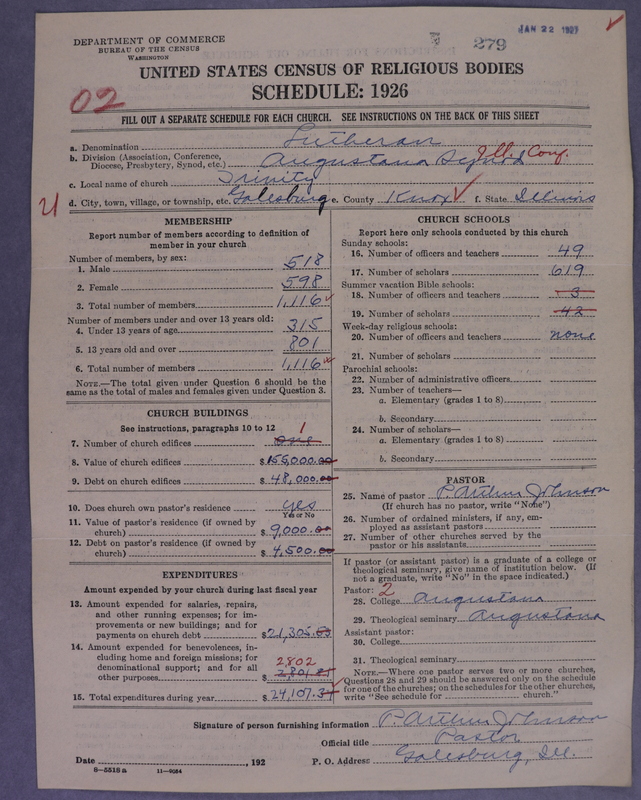 DEPARTMENT OF COMMERCE
BUREAU OF THE CENSUS
WASHINGTON
279
JAN 22 1927
UNITED STATES CENSUS OF RELIGIOUS BODIES
SCHEDULE: 1926
02
FILL OUT A SEPARATE SCHEDULE FOR EACH CHURCH. SEE INSTRUCTIONS ON THE BACK OF THIS SHEET
a. Denomination Lutheran
b. Division (Association, Conference, Diocese, Presbytery, Synod, etc.) Augustana Synod Ill. Conf.
c. Local name of church Trinity
d. City, town, village, or township, etc. Galesburg e. County Knox f. State Illinois
MEMBERSHIP
Report number of members according to definition of
member in your church
Number of members, by sex:
1. Male 518
2. Female 598
3. Total number of members 1,116
Number of members under and over 13 years old:
4. Under 13 years of age 315
5. 13 years old and over 801
6. Total number of members 1,116
NOTE.—The total given under Question 6 should be the
same as the total of males and females given under Question 3.
CHURCH BUILDINGS
See instructions, paragraphs 10 to 12
1
7. Number of church edifices one
8. Value of church edifices $155,000.00
9. Debt on church edifices $48,000.00
10. Does church own pastor's residence? yes
Yes or No
11. Value of pastor's residence (if owned by
church) $9,000.00
12. Debt on pastor's residence (if owned by
church) $4,500.00
EXPENDITURES
Amount expended by your church during last fiscal year
13. Amount expended for salaries, repairs,
and other running expenses; for im-
provements or new buildings; and for
payments on church debt $21,305.
14. Amount expended for benevolences, in-
cluding home and foreign missions; for
denominational support; and for all 2802
other purposes $2,801.
15. Total expenditures during year $24,107.
CHURCH SCHOOLS
Report here only schools conducted by this church
Sunday schools:
16. Number of officers and teachers 49
17. Number of scholars 619
Summer vacation Bible schools:
18. Number of officers and teachers 3
19. Number of scholars 42
Week-day religious schools:
20. Number of officers and teachers none
21. Number of scholars
Parochial schools:
22. Number of administrative officers
23. Number of teachers—
a. Elementary (grades 1 to 8)
b. Secondary
24. Number of scholars—
a. Elementary (grades 1 to 8)
b. Secondary
PASTOR
25. Name of pastor P. Arthur Johnson
(If church has no pastor, write "None")
26. Number of ordained ministers, if any, em-
ployed as assistant pastors
27. Number of other churches served by the
pastor or his assistants
If pastor (or assistant pastor) is a graduate of a college or
theological seminary, give name of institution below. (If
not a graduate, write "No" in the space indicated.)
Pastor: 2
28. College Augustana
29. Theological seminary Augustana
Assistant pastor:
30. College
31. Theological seminary
NOTE.—Where one pastor serves two or more churches,
Questions 28 and 29 should be answered only on the schedule
for one of the churches; on the schedules for the other churches,
write "See schedule for church."
Signature of person furnishing information P. Arthur Johnson
Official title Pastor
Date , 192 P. O. Address Galesburg, Ill.
8-5518a 11-9054